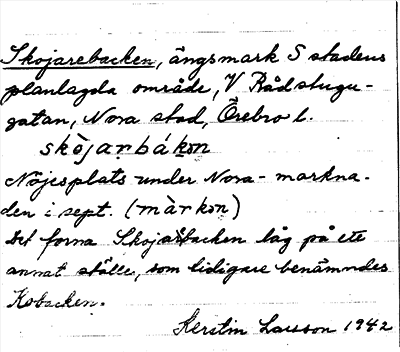 Skojarebacken, ängsmark S stadens
planlagda område, V Rådstugu-
gatan, Nora stad, Örebro l.
skòjarbákon
Nöjesplats under Nora-markna-
den i sept. (màrkon)
Det forna Skojarbacken låg på ett
annat ställe, som tidigare benämndes
Kobacken.
Kerstin Larsson 1942